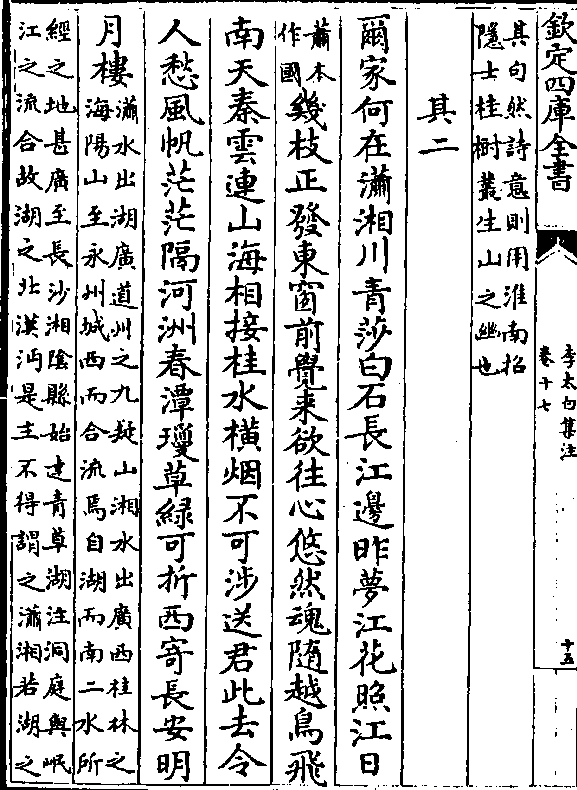 欽定四庫全書
李太白集注
卷十七
十五
其句然詩意則用淮南招
隱士桂樹叢生山之幽也
其二
爾家何在瀟湘川青莎白石長江邊昨夢江花照江日
蕭本
作國
幾枝正發東窗前覺來欲往心悠然魂隨越鳥飛
南天秦雲連山海相接桂水橫烟不可涉送君此去令
人愁風帆茫茫隔河洲春潭瓊草綠可折西寄長安明
月樓
瀟水出湖廣道州之九疑山湘水出廣西桂林之
海陽山至永州城西而合流焉自湖而南二水所
經之地甚廣至長沙湘陰縣始達青草湖注洞庭與岷
江之流合故湖之北漢沔是主不得謂之瀟湘若湖之